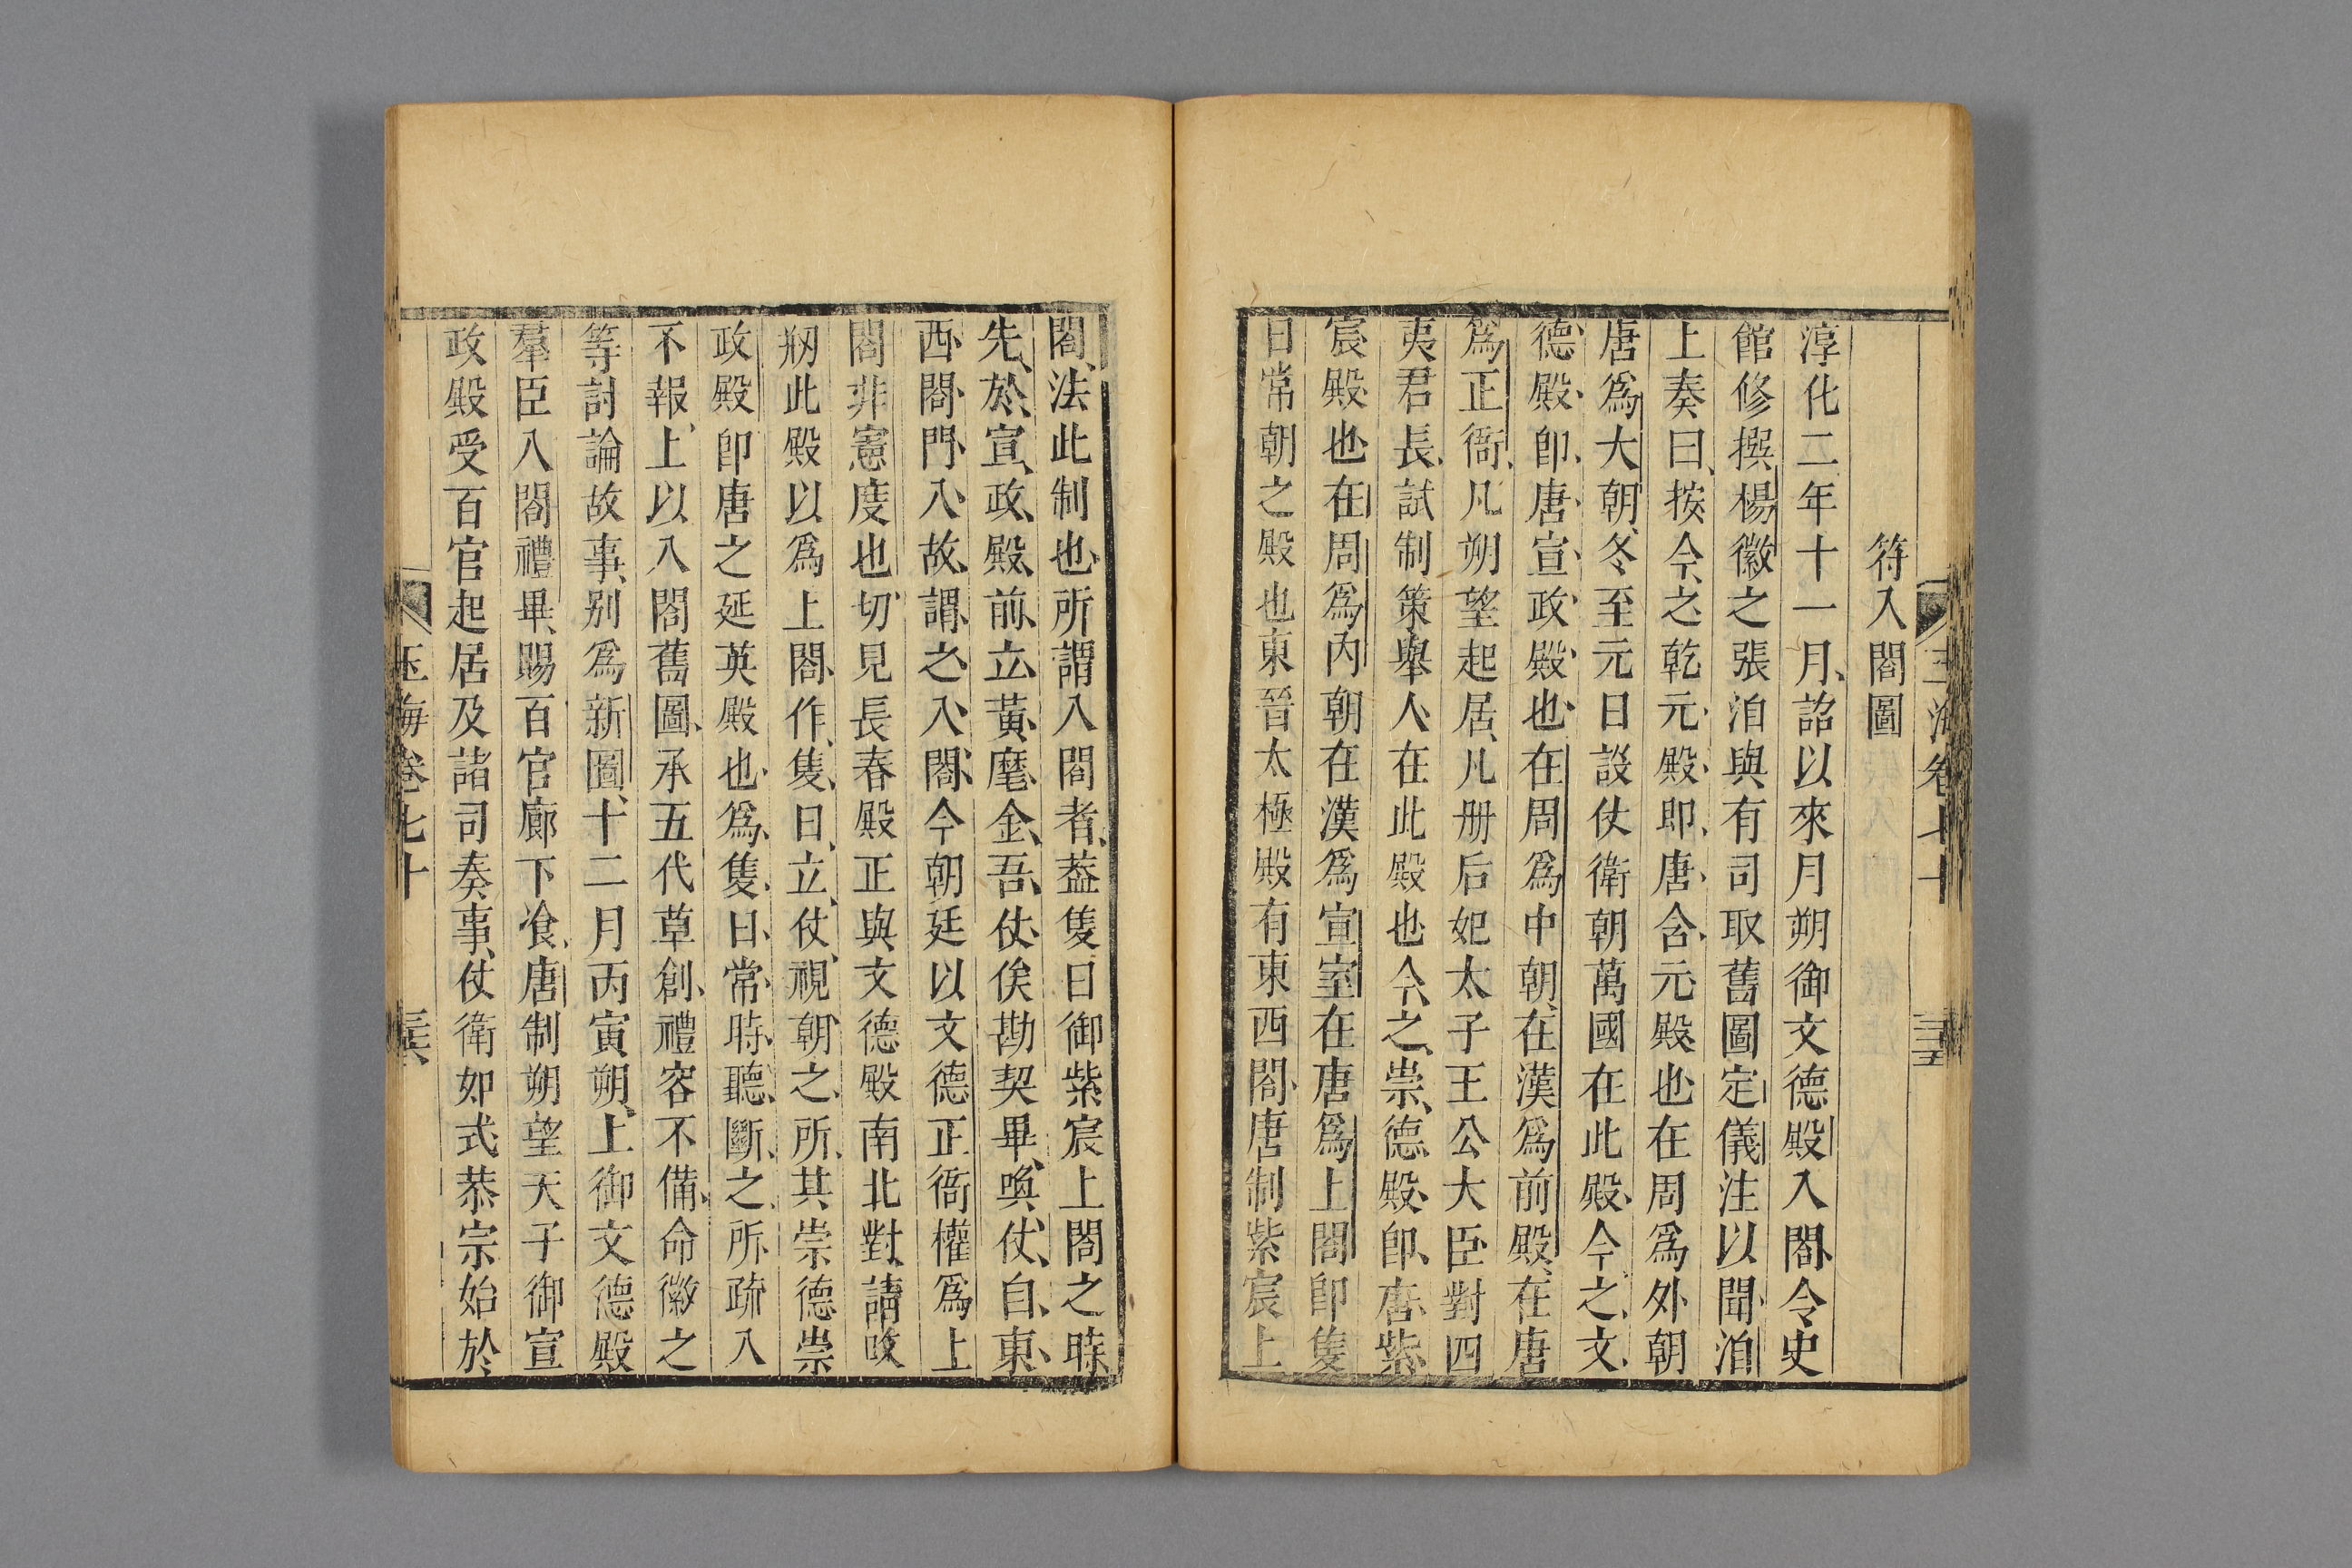 玉海卷七十
三十五
符入閤圖
淳化二年十一月詔以來月朔御文德殿入閤令史
館修撰楊徽之張洎與有司取舊圖定儀注以聞洎
上奏曰按今之乾元殿即唐含元殿也在周爲外朝
唐爲大朝冬至元日設仗衛朝萬國在此殿今之文
德殿卽唐宣政殿也在周爲中朝在漢爲前殿在唐
爲正衙凡朔望起居凡册后妃太子王公大臣對四
夷君長試制策舉人在此殿也今之崇德殿卽唐紫
宸殿也在周爲內朝在漢爲宣室在唐爲上閤卽隻
日常朝之殿也東晉太極殿有東西閤唐制紫宸上
閤法此制也所謂入閤者葢隻日御紫宸上閤之時
先於宣政殿前立黃麾金吾仗俟勘契畢喚仗自東
西閤門入故謂之入閤今朝廷以文德正衙權爲上
閤非憲度也切見長春殿正與文德殿南北對請改
剏此殿以爲上閤作隻日立仗視朝之所其崇德崇
政殿卽唐之延英殿也爲隻日常時聽斷之所疏入
不報上以入閤舊圖承五代草創禮容不備命徽之
等討論故事別爲新圖十二月丙寅朔上御文德殿
羣臣入閤禮畢賜百官廊下飡唐制朔望天子御宣
政殿受百官起居及諸司奏事仗衛如式恭宗始於
玉海卷七十
三十六